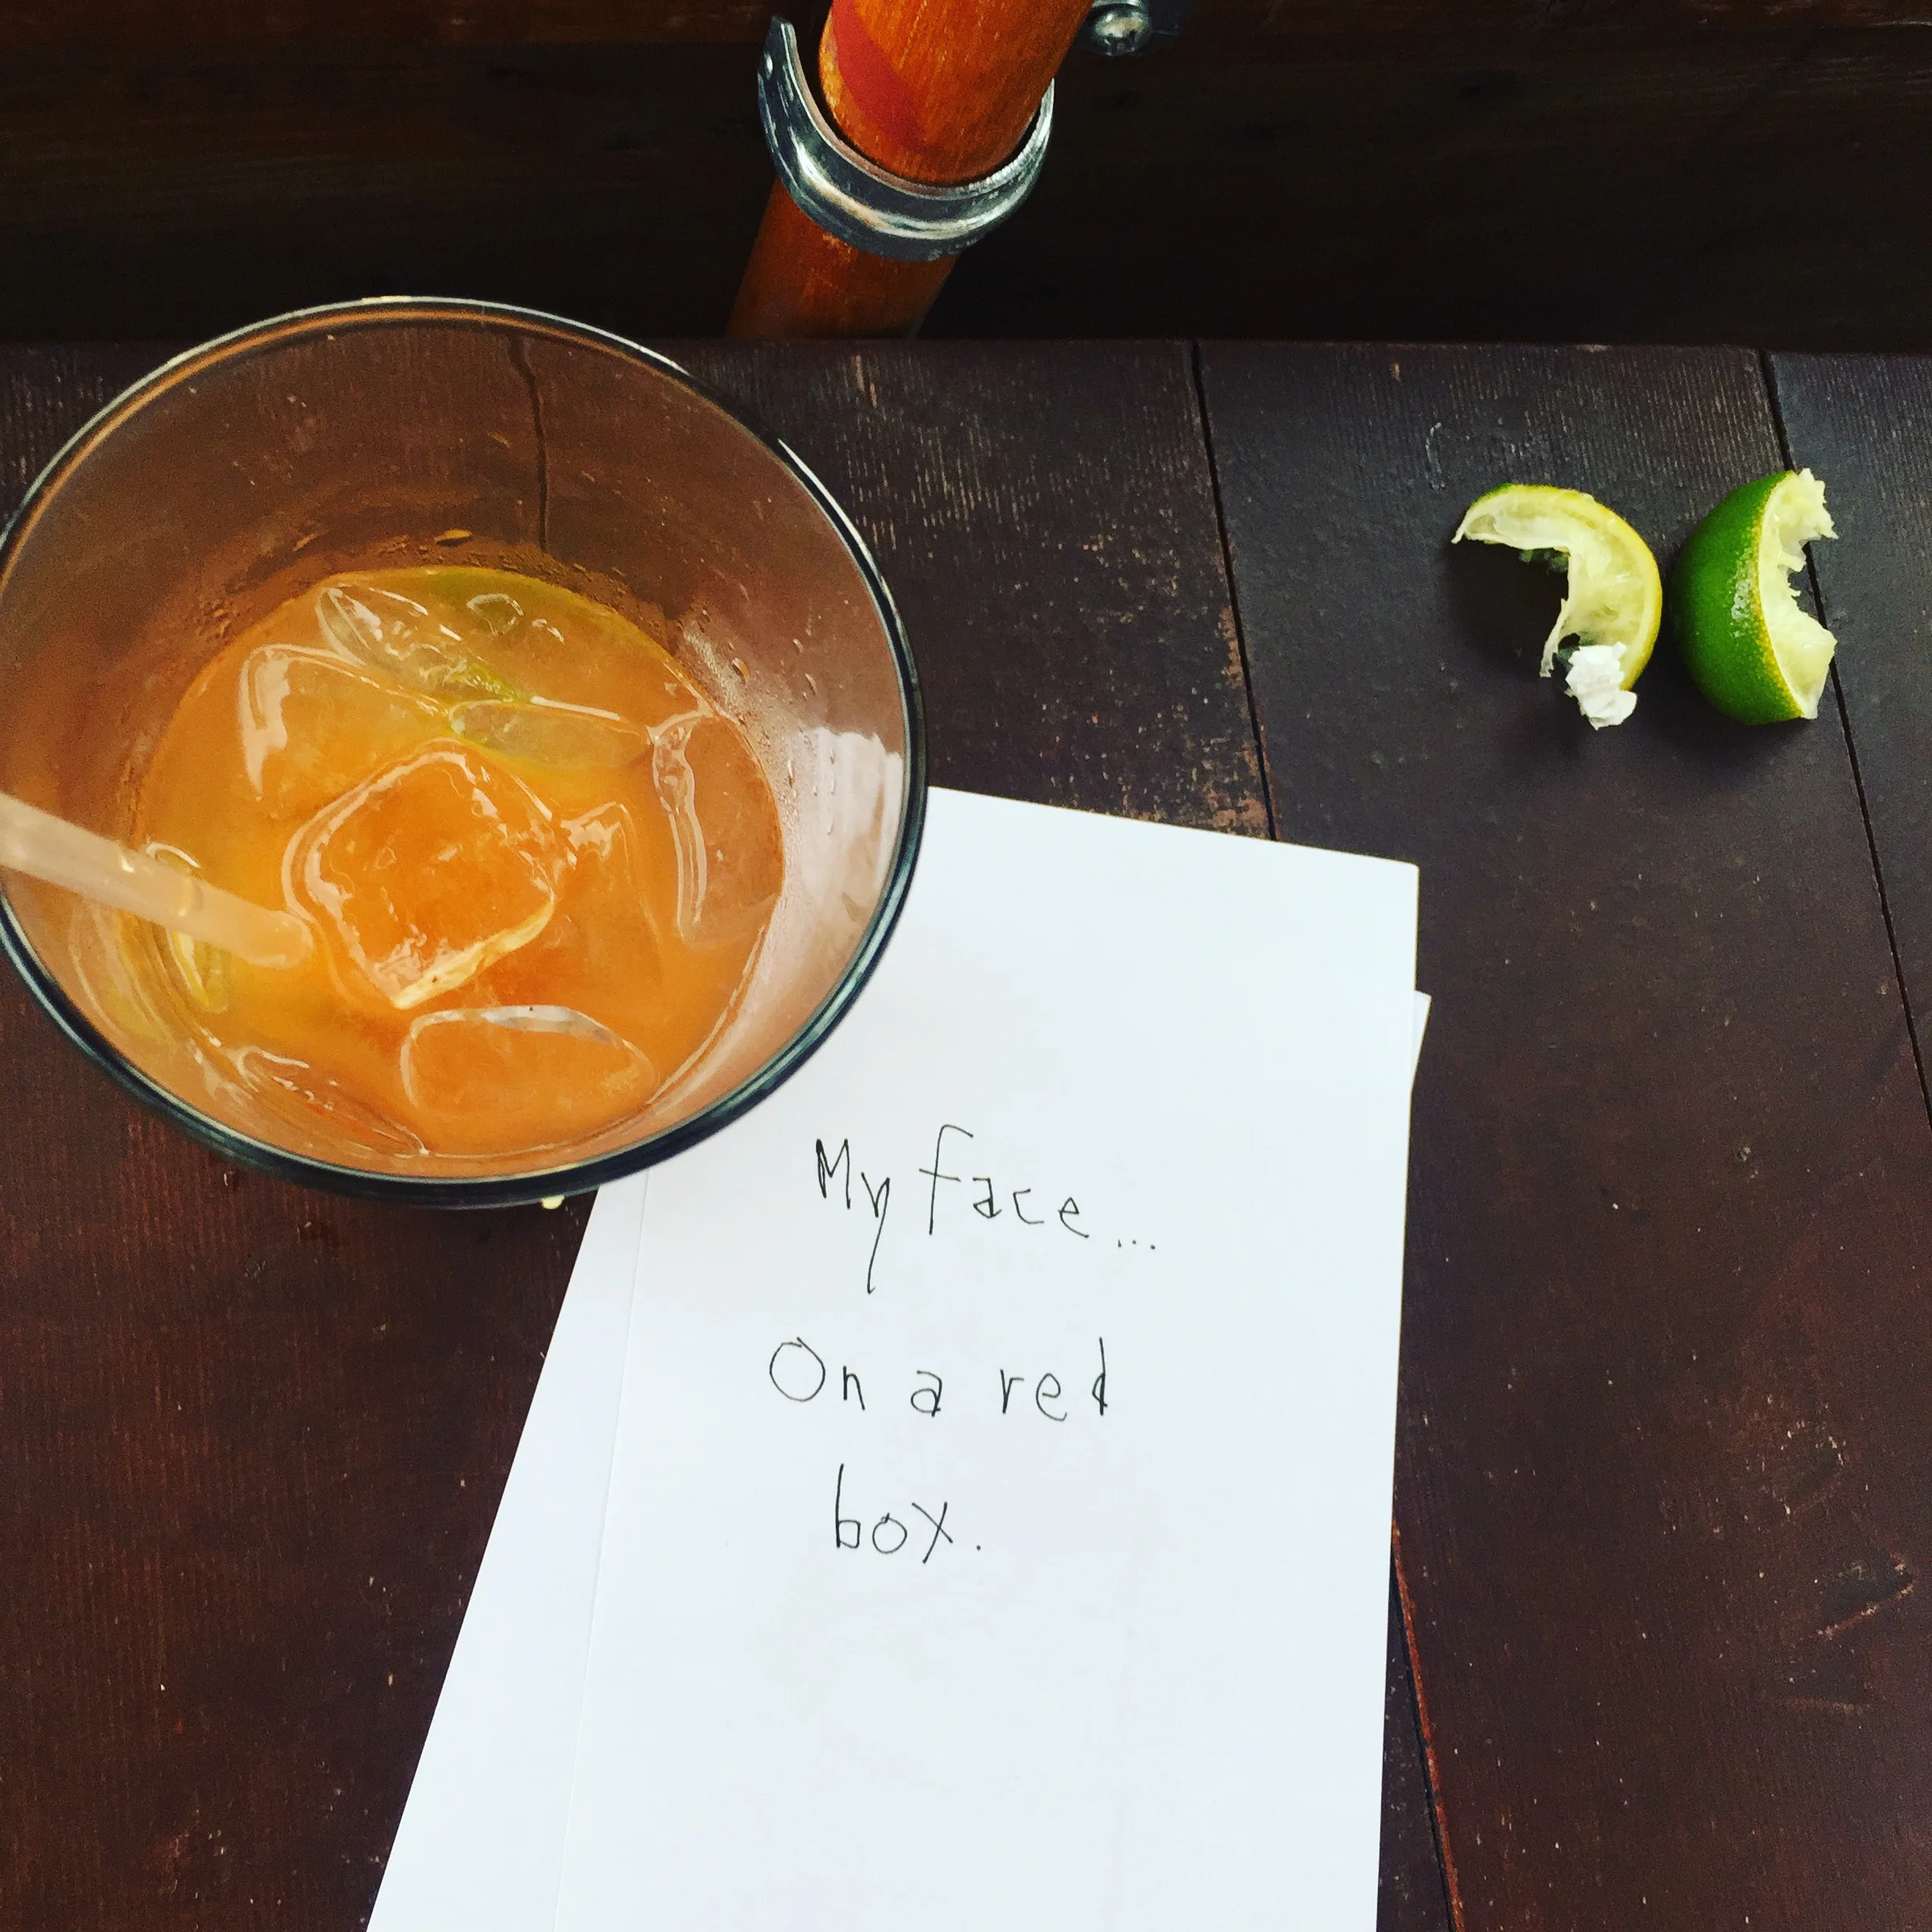 My face...
On a red
box.